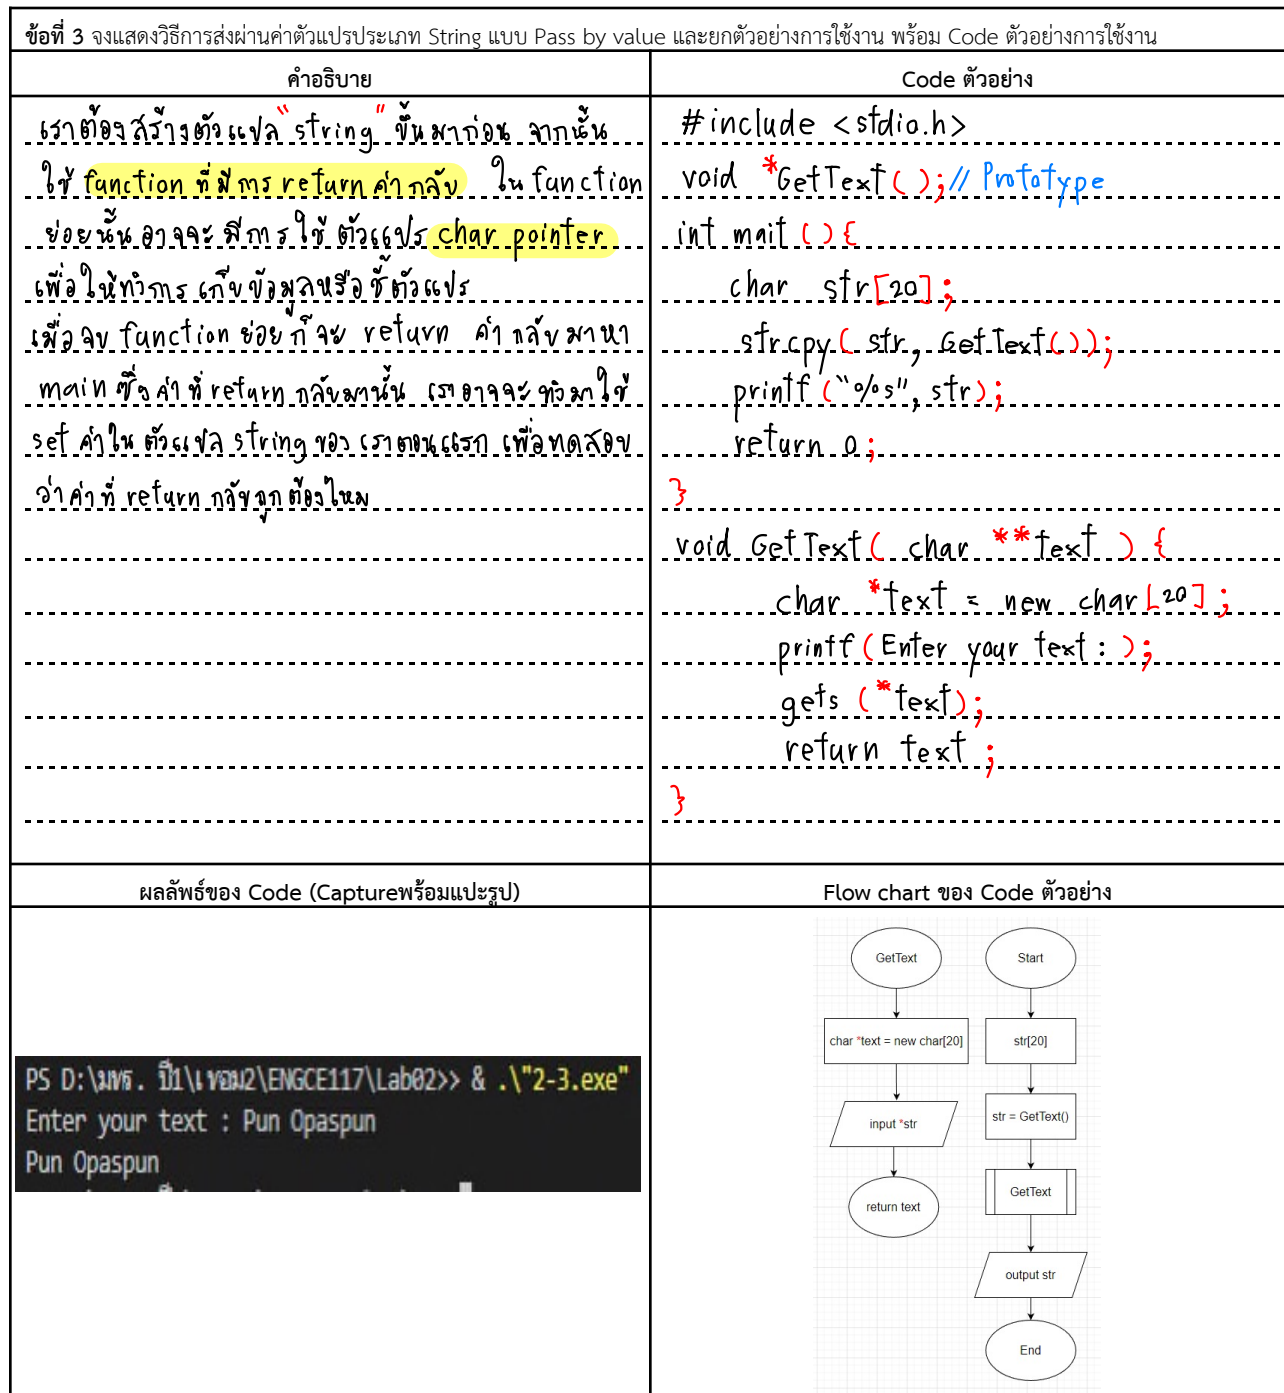 ข้อที่ 3 จงแสดงวิธีการส่งผ่านค่าตัวแปรประเภท String แบบ Pass by value และยกตัวอย่างการใช้งาน พร้อม Code ตัวอย่างการใช้งาน
คำอธิบาย
เราต้องสร้างตัวแปล "string" ขึ้นมาก่อน จากนั้น
ใช้ function ที่มีการ return ค่ากลับ ใน function
ย่อยนั้นอาจจะมีการใช้ตัวแปร char pointer
เพื่อให้ทำการเก็บข้อมูลหรือชี้ตัวแปร
เมื่อจบ function ย่อยก็จะ return ค่ากลับมาหา
main ซึ่งค่าที่ return กลับมานั้น เราอาจจะนำมาใช้
set ค่าในตัวแปล string ของเราตอนแรก เพื่อทดสอบ
ว่าค่าที่ return กลับถูกต้องไหม
Code ตัวอย่าง
#include <stdio.h>
void *GetText();// Prototype
int mait(){
char str[20];
strcpy( str, GetText());
printf("%s", str);
return 0;
}
void GetText( char **text ) {
char *text = new char[20];
printf(Enter your text: );
gets (*text);
return text ;
}
ผลลัพธ์ของ Code (Captureพร้อมแปะรูป)
PS D:\มทร. ปี1\เทอม2\ENGCE117\Lab02>> & .\"2-3.exe"
Enter your text : Pun Opaspun
Pun Opaspun
Flow chart ของ Code ตัวอย่าง
GetText
char *text = new char[20]
input *str
return text
Start
str[20]
str = GetText()
GetText
output str
End